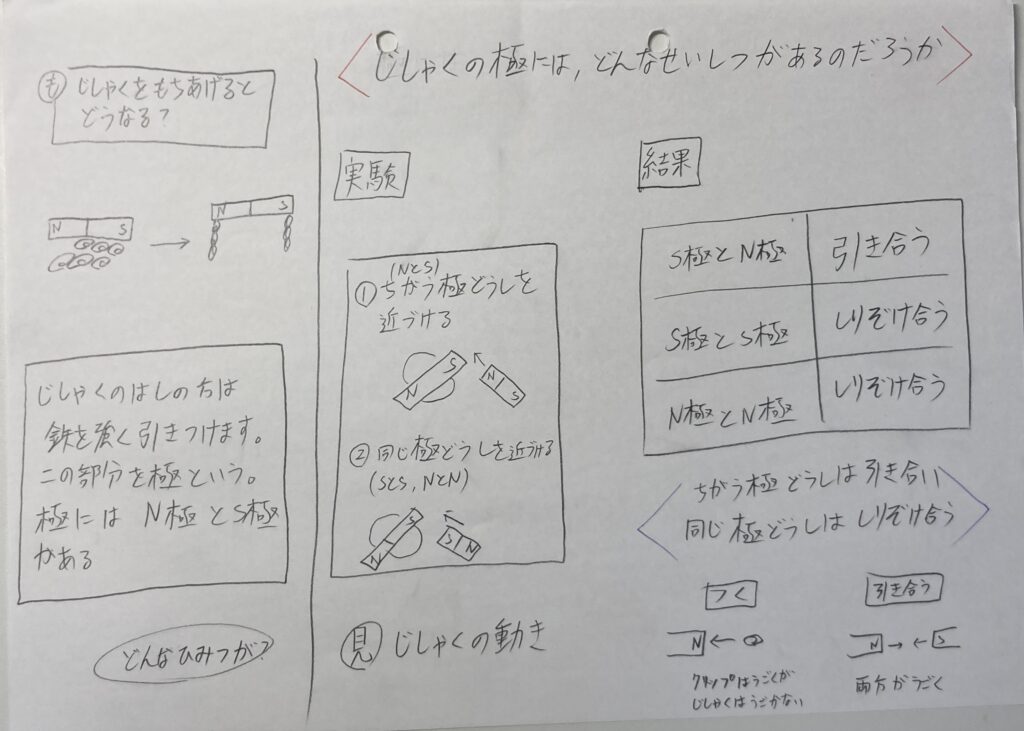 も じしゃくをもちあげると
どうなる?
N S
N S
じしゃくのはしの方は
鉄を強く引きつけます。
この部分を極という。
極には N極とS極
がある
どんなひみつが?
じしゃくの極には,どんなせいしつがあるのだろうか
実験
(NとS)
① ちがう極どうしを
近づける
N S
N S
② 同じ極どうしを近づける
(SとS,NとN)
N S
S N
見 じしゃくの動き
結果
S極とN極 引き合う
S極とS極 しりぞけ合う
N極とN極 しりぞけ合う
ちがう極どうしは引き合い
同じ極どうしはしりぞけ合う
つく
N
クリップはうごくが
じしゃくはうごかない
引き合う
N S
両方がうごく